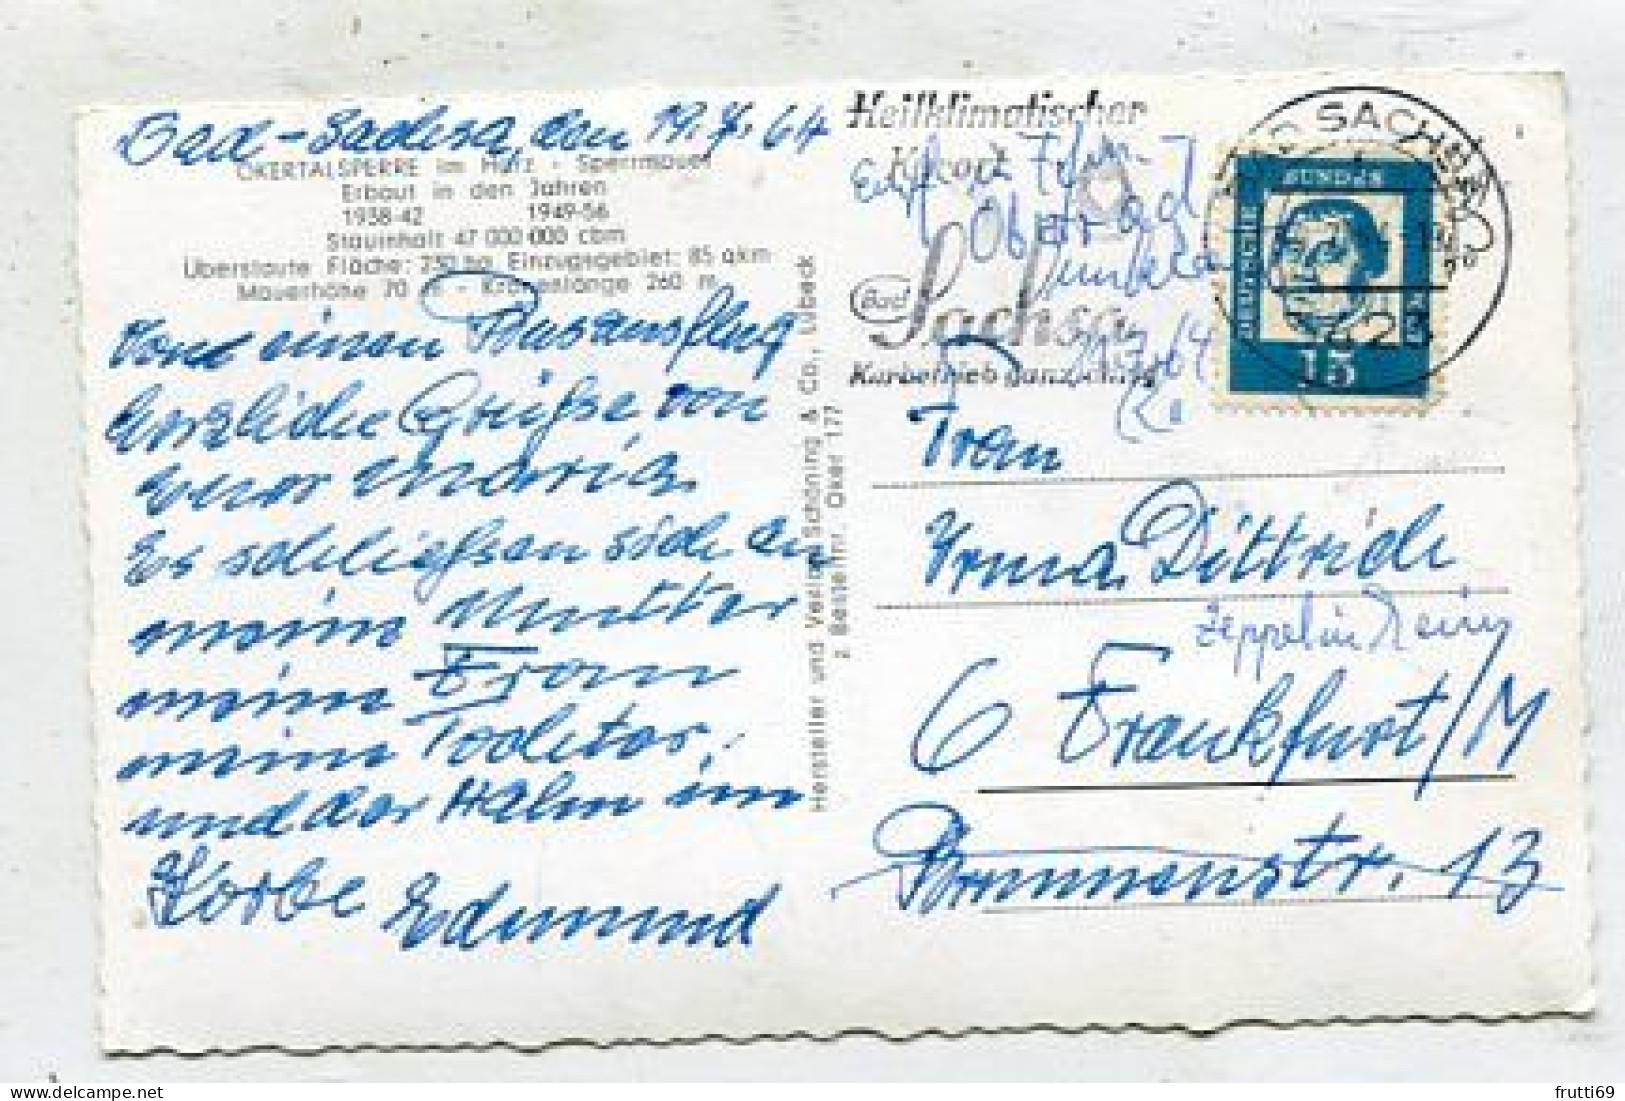 Bad-Sachsa, den 19.7.64
OKERTALSPERRE im Harz - Sperrmauer
Erbaut in den Jahren
1938-42 1949-56
Stauinhalt 47 000 000 cbm
Überstaute Fläche: 230 ha Einzugsgebiet: 85 qkm
Mauerhöhe 70 m - Kronenlänge 260 m
Von einen Busausflug
herzliche Grüße von
Euer Maria
Es schließen sich an
meine Mutter
meine Frau
meine Tochter,
und der Hahn im
Korbe Edmund
Hersteller und Verlag Schöning & Co., Lübeck
2 Bestellnr. Oker 177
Heilklimatischer
Kurort
Bad Sachsa
Kurbetrieb ganzjährig
BAD SACHSA
3423
DEUTSCHE
BUNDES
15
Oberrad
64
Frau
Irma Dittrich
Zeppelin
6 Frankfurt/M
Brunnenstr. 13
frutti69